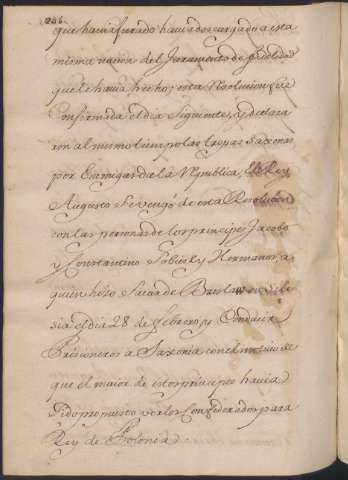 206.
que havia jurado havia descargado a esta
misma nacion del Juramento de fidelidad
que le havia hecho; esta Resolucion fue
Confirmada el dia Siguiente, y declara
ron al mismo tiempo las tropas Saxonas
por Enemigas de la Republica, El Rey
Augusto Se vengó de esta Resolucion
con las personas de los principes Jacobo
y Constantino Sobieski Hermanos, a
quien hizo Sacar de Breslaw en Sile
sia el dia 28 de febrero, y Conducir
Prisioneros a Saxonia con el motivo de
que el maior de estos principes havia
Sido propuesto por los Confederados para
Rey de Polonia